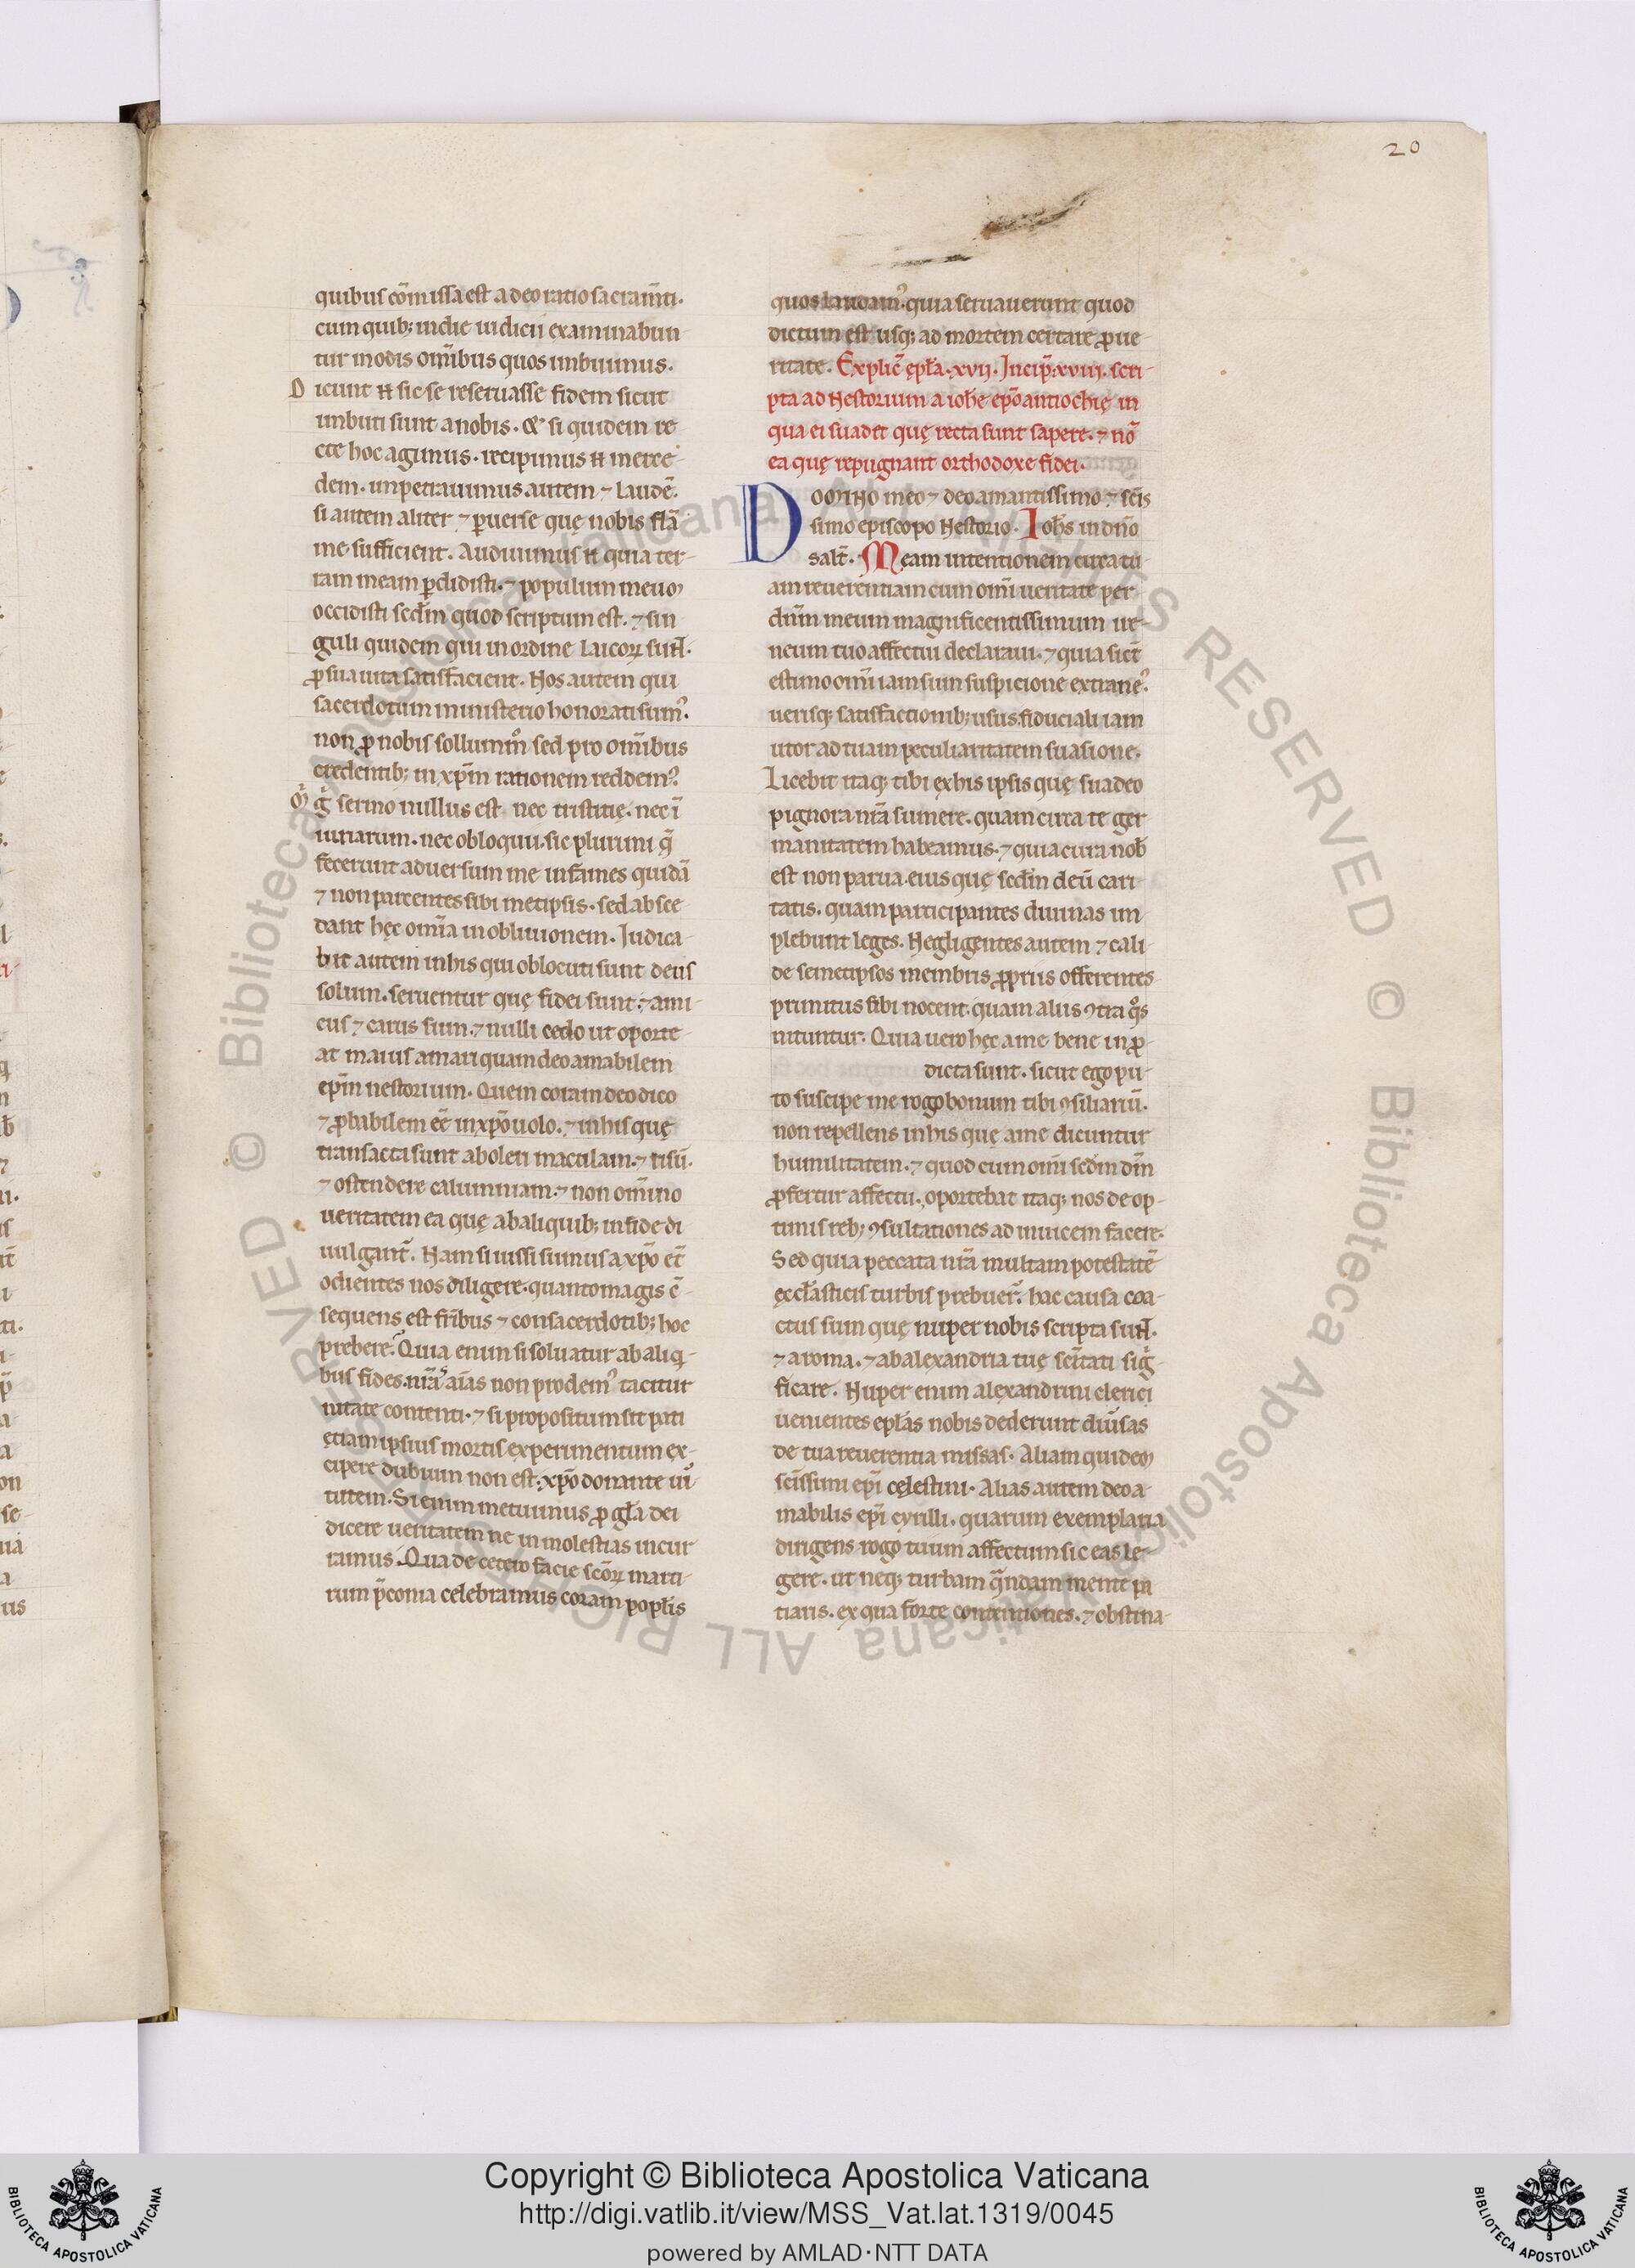 20
quibus cōmissa est a deo ratio sacram̄ti.
cum quib; in die iudicii examinabun
tur modis om̄ibus quos imbuimus.
Dicunt N̄ sic se reseruasse fidem sicut
imbuti sunt a nobis. & si quidem re
cte hoc agimus. recipimus N̄ merce-
dem. impetrauimus autem ⁊ laudē.
si autem aliter ⁊ ꝑuerse quę nobis flā
me sufficient. Audiuimus N̄ quia ter-
ram meam ꝑdidisti. ⁊ populum meum
occidisti sed̄m quod scriptum est. ⁊ sin
guli quidem qui in ordine laicoꝝ sunt.
ꝓ sua uita satisfacient. Nos autem qui
sacerdotum ministerio honorati sumꝰ.
non ꝓ nobis sollummͦ sed pro om̄ibus
credentib; in xp̄m rationem reddemꝰ.
sermo nullus est. nec tristitię. nec ī
iuriarum. nec obloquii. sic plurimi q̄
fecerunt aduersum me infames quidā
⁊ non parcentes sibimetipsis. sed absce
dant hęc om̄ia in obliuionem. Iudica-
bit autem in his qui oblocuti sunt deus
solum. seruentur quę fidei sunt. ⁊ ami-
cus ⁊ carus sum. ⁊ nulli cedo ut oporte-
at maius amari quam deo amabilem
ep̄m nestorium. Quem coram deo dico
⁊ ꝓbabilem eē in xp̄o uolo. ⁊ in his quę
transacta sunt aboleri maculam. ⁊ risū.
⁊ ostendere calumniam. ⁊ non om̄ino
ueritatem ea quę ab aliquib; in fide di
uulgant̄. Nam si iussi sumus a xp̄o et̄
odientes nos diligere. quantomagis c̄-
sequens est fr̄ibus ⁊ consacerdotib; hoc
prebere. Quia enim si soluatur ab aliq-
bus fides. nr̄as aīas non prodemꝰ tacitur
nitate contenti. ⁊ si propositum sit pati
ętiam ipsius mortis experimentum ex-
cipere dubium non est. xp̄o donante uir
tutem. Si enim metuimus ꝓ gl̄a dei
dicere ueritatem ne in molestias incur
ramus. Qua de cetero facie sc̄oꝝ marti-
rum p̄conia celebramus coram popl̄is
quos laudamꝰ. quia seruauerunt quod
dictum est usq; ad mortem certare ꝓ ue
ritate. Explic̄ ępl̄a. xvij. Incip̄. xviij. scri-
pta ad Nestorium a ioh̄e ep̄o antiochię in
qua ei suadet quę recta sunt sapere. ⁊ nō
ea quę repugnant orthodoxe fidei.
DOMINO meo ⁊ deo amantissimo ⁊ sc̄is
simo episcopo Nestorio. Ioh̄s in dn̄o
salt̄. Meam intentionem circa tu-
am reuerentiam cum om̄i ueritate per
dn̄m meum magnificentissimum ire-
neum tuo affectui declaraui. ⁊ quia sic̄
estimo om̄i iam sum suspicione extraneꝰ.
uerisq; satisfactionib; usus fiduciali iam
utor ad tuam peculiaritatem suasione.
Licebit itaq; tibi ex his ipsis quę suadeo
pignora nr̄a sumere. quam circa te ger
manitatem habeamus. ⁊ quia cura nob̄
est non parua. eius quę sed̄m deū cari
tatis. quam participantes diuinas im
plebunt leges. Negligentes autem ⁊ cali-
de semetipsos membris ꝓpriis offerentes
primitus sibi nocent. quam aliis ꝯtra q̄s
nituntur. Quia uero hęc a me bene in ꝓ-
dicta sunt. sicut ego pu-
to suscipe me rogo bonum tibi ꝯsiliariū.
non repellens in his quę a me dicuntur
humilitatem. ⁊ quod cum om̄i sed̄m dm̄
ꝓfertur affectu. oportebat itaq; nos de op-
timis reb; ꝯsultationes ad inuicem facere.
Sed quia peccata nr̄a multam potestatē
ęccl̄asticis turbis prebuer̄. hac causa coa-
ctus sum quę nuper nobis scripta sunt.
⁊ a roma. ⁊ ab alexandria tuę sc̄itati sig-
ficare. Nuper enim alęxandrini clerici
uenientes epl̄as nobis dederunt diuīsas
de tua reuerentia missas. Aliam quidem
sc̄issimi ep̄i cęlestini. Alias autem deo a
mabilis ep̄i cyrilli. quarum exemplaria
dirigens rogo tuum affectum sic eas le-
gere. ut neq; turbam q̄ndam mente pa
tiaris. ex qua forte contentiones. ⁊ obstina-
Copyright © Biblioteca Apostolica Vaticana
http://digi.vatlib.it/view/MSS_Vat.lat.1319/0045
powered by AMLAD·NTT DATA
BIBLIOTECA APOSTOLICA VATICANA
BIBLIOTECA APOSTOLICA VATICANA
© Biblioteca Apostolica Vaticana ALL RIGHTS RESERVED © Biblioteca Apostolica Vaticana ALL RIGHTS RESERVED